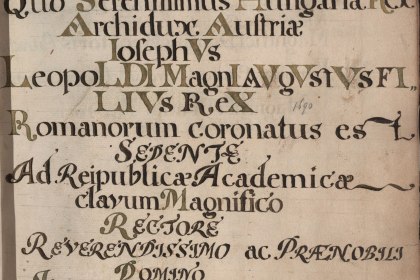 Quo Serenissimus Hungariæ Rex
Archidux Austriæ
IosephVs
LeopoLDI MagnI AVgVstVs FI_
LIVs ReX
1690
Romanorum coronatus est
SEDENTE
Ad Reipublicæ Academicæ
clavum Magnifico
RECTORE
REVERENDISSIMO ac PRÆNOBILI
DOMINO